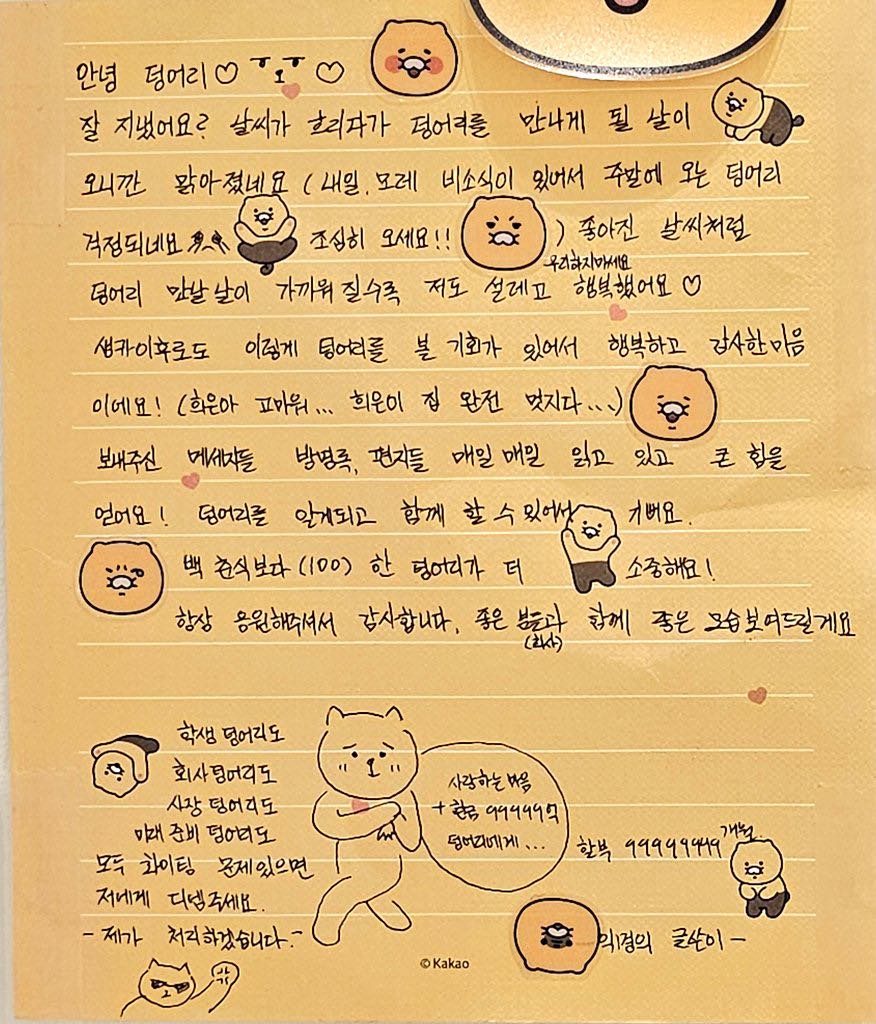 안녕 덩어리♡ ㅜ_ㅜ ♡
잘 지냈어요? 날씨가 흐리다가 덩어리를 만나게 될 날이
오니깐 맑아졌네요 (내일, 모레 비소식이 있어서 주말에 오는 덩어리
걱정되네요 ㅠㅠ 조심히 오세요!! ) 좋아진 날씨처럼
무리하지마세요
덩어리 만날 날이 가까워 질수록 저도 설레고 행복했어요♡
생카이후로도 이렇게 덩어리를 볼 기회가 있어서 행복하고 감사한 마음
이에요! (희은아 고마워... 희은이 집 완전 멋지다...)
보내주신 메세지들 방명록, 편지들 매일 매일 읽고 있고 큰 힘을
얻어요! 덩어리를 알게되고 함께 할 수 있어서 기뻐요.
백 춘식보다 (100) 한 덩어리가 더 소중해요!
항상 응원해주셔서 감사합니다. 좋은 분들과 함께 좋은 모습보여드릴게요
(회사)
학생 덩어리도
회사덩어리도
사장 덩어리도
미래 준비 덩어리도
모두 화이팅 문제있으면
저에게 디엠주세요.
- 제가 처리하겠습니다.-
사랑하는 마음
+ 현금 99999억
덩어리에게...
할부 99999999개월
글쓴이 -
©Kakao